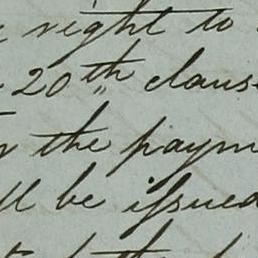 right to
20th claus
the paym
ll be issued